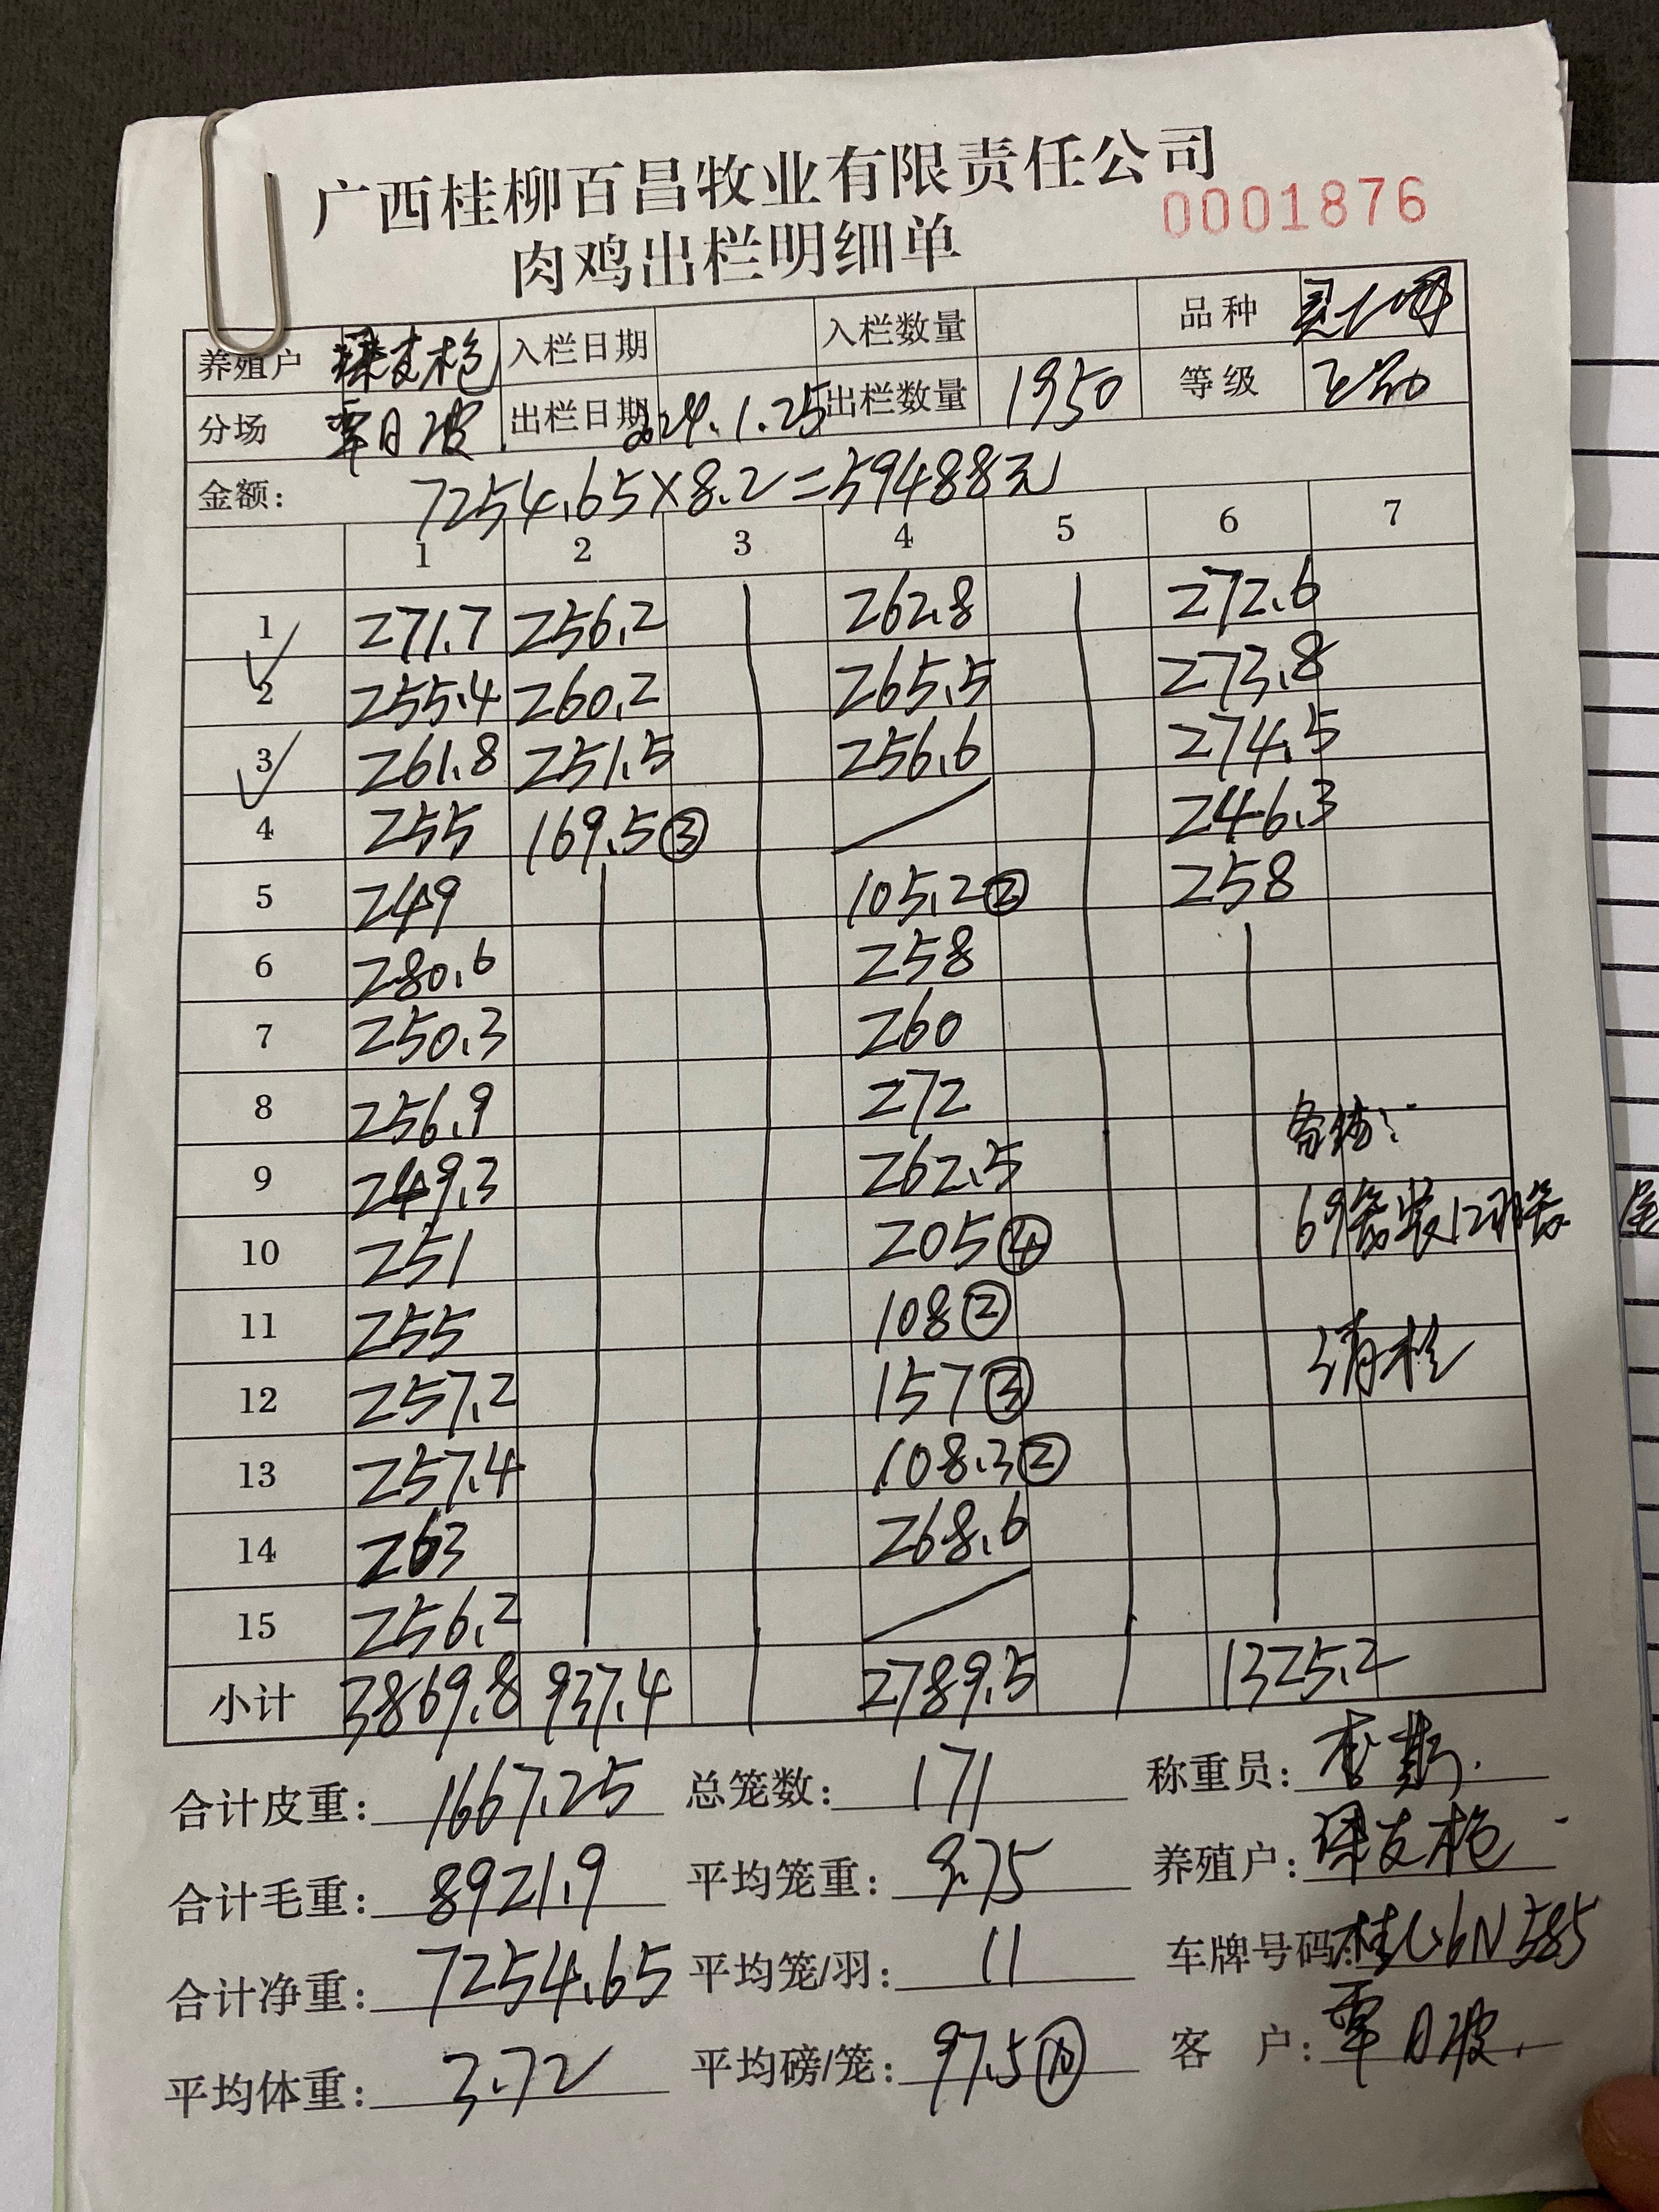 广西桂柳百昌牧业有限责任公司
0001876
肉鸡出栏明细单
养殖户 入栏日期 入栏数量 品种
分场 覃日波 出栏日期 2024.1.25 出栏数量 1950 等级
金额: 7254.65×8.2=59488元
1 2 3 4 5 6 7
1 271.7 256.2 262.8 272.6
2 255.4 260.2 265.5 273.8
3 261.8 251.5 256.6 274.5
4 255 169.5③ 246.3
5 249 105.2② 258
6 280.6 258
7 250.3 260
8 256.9 272
9 249.3 262.5
10 251 205④ 69笼装12羽
11 255 108②
12 257.2 157③ 清栏
13 257.4 108.3②
14 263 268.6
15 256.2
小计 3869.8 937.4 2789.5 1325.2
合计皮重: 1667.25 总笼数: 171 称重员:
合计毛重: 8921.9 平均笼重: 9.75 养殖户:
合计净重: 7254.65 平均笼/羽: 11 车牌号码:
平均体重: 3.72 平均磅/笼: 97.5 客 户: 覃日波